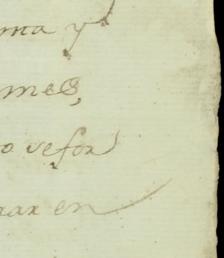 ma y
mes,
o se for
rar en